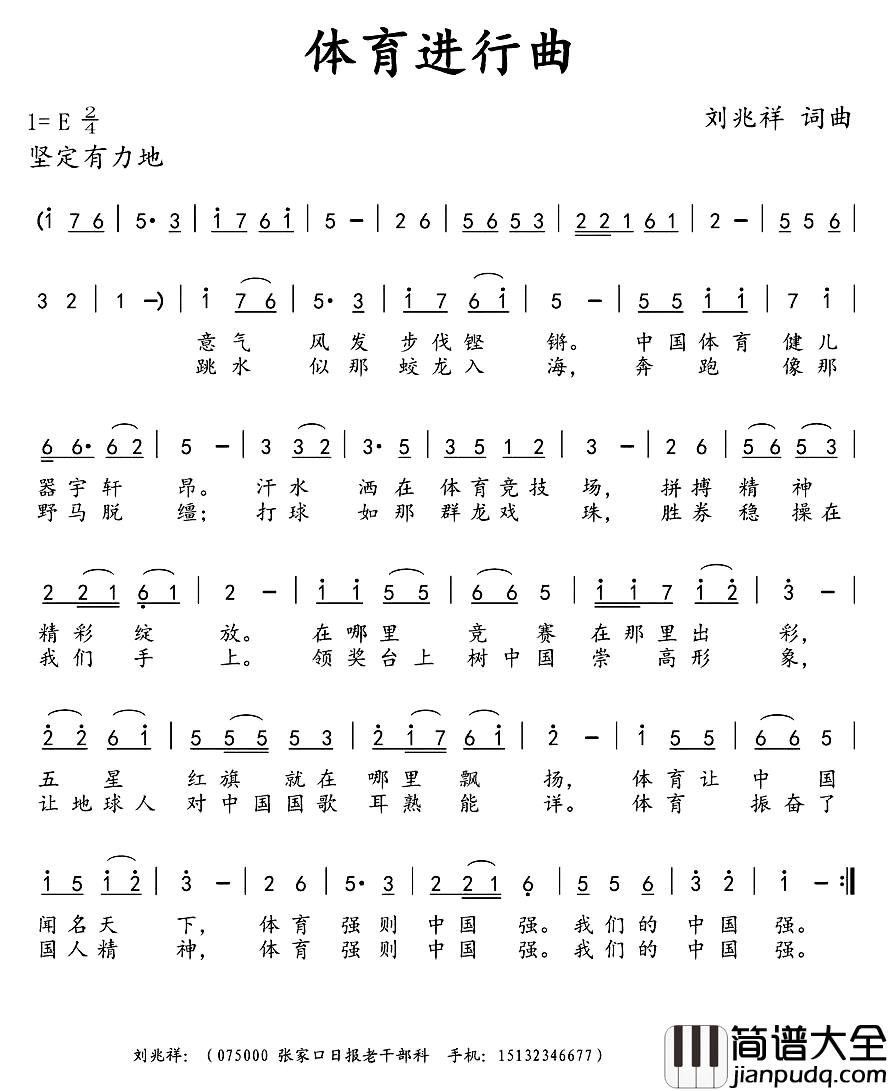 体育进行曲
1= E 2/4
刘兆祥 词曲
坚定有力地
(i 7 6 | 5· 3 | i 7 6 i | 5 － | 2 6 | 5 6 5 3 | 2 2 1 6 1 | 2 － | 5 5 6 |
3 2 | 1 －) | i 7 6 | 5· 3 | i 7 6 i | 5 － | 5 5 i i | 7 i |
意气 风发 步伐铿 锵。 中国体育 健儿
跳水 似那 蛟龙入 海， 奔 跑 像那
6 6· 6 2 | 5 － | 3 3 2 | 3· 5 | 3 5 1 2 | 3 － | 2 6 | 5 6 5 3 |
器宇轩 昂。 汗水 洒在 体育竞技 场， 拼搏 精神
野马脱 缰； 打球 如那 群龙戏 珠， 胜券 稳操在
2 2 1 6 1 | 2 － | i i 5 5 | 6 6 5 | i i 7 i 2 | 3 － |
精彩绽 放。 在哪里 竞赛 在那里出 彩，
我们手 上。 领奖台上 树中国 崇高形 象，
2 2 6 i | 5 5 5 5 3 | 2 i 7 6 i | 2 － | i 5 5 | 6 6 5 |
五星 红旗就在 哪里飘 扬， 体育让 中国
让地球人 对中国国歌 耳熟能 详。 体育 振奋了
i 5 i 2 | 3 － | 2 6 | 5· 3 | 2 2 1 6 | 5 5 6 | 3 2 | i － :‖
闻名天 下， 体育 强则 中国 强。我们的 中国 强。
国人精 神， 体育 强则 中国 强。我们的 中国 强。
刘兆祥：（075000 张家口日报老干部科 手机：15132346677）
简谱大全
jianpudq.com